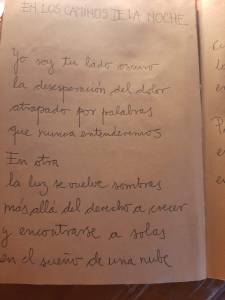 EN LOS CAMINOS DE LA NOCHE
Yo soy tu lado oscuro
la desesperación del dolor
atrapado por palabras
que nunca entenderemos
En otra
la luz se vuelve sombras
más allá del derecho a crecer
y encontrarse a solas
en el sueño de una nube